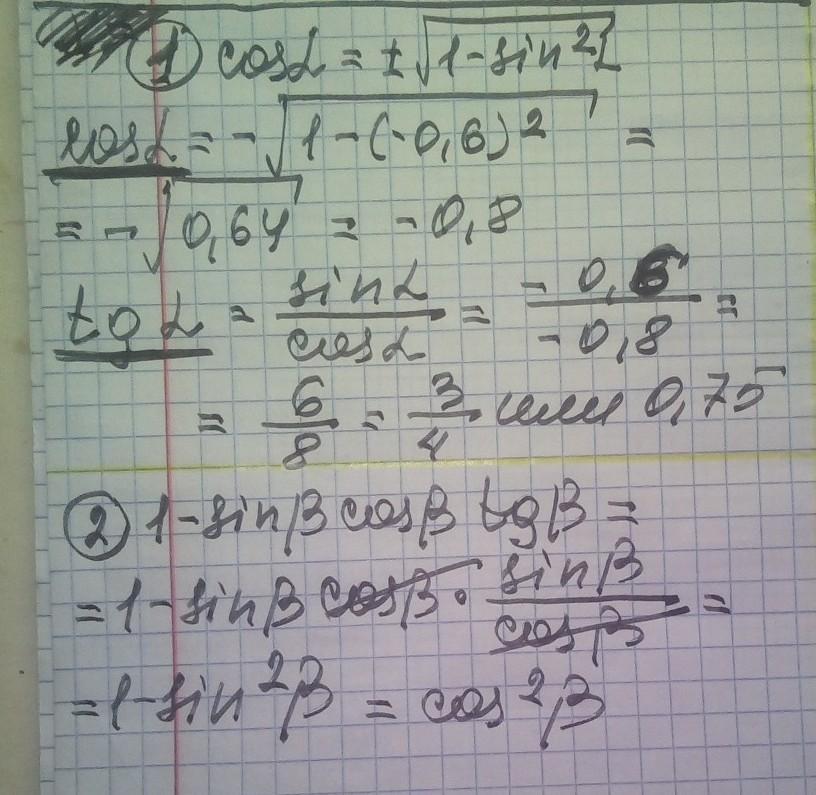 ① cosα = ±√(1-sin²α)
cosα = -√(1-(-0,6)²) =
= -√(0,64) = -0,8
tg α = sinα/cosα = -0,6/-0,8 =
= 6/8 = 3/4 или 0,75
② 1-sinβ cosβ tgβ =
= 1-sinβ cosβ · sinβ/cosβ =
= 1-sin²β = cos²β